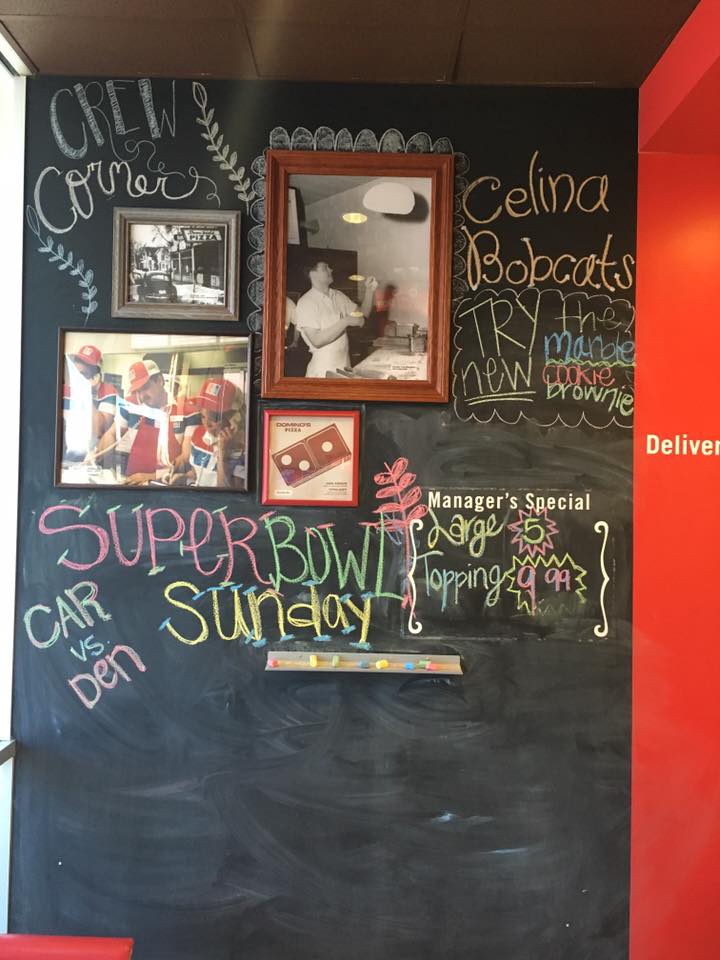 CREW
Corner
PIZZA
Celina
Bobcats
TRY
new
the
Marble
Cookie
Brownie
DOMINO'S
PIZZA
SUPERBOWL
Sunday
CAR
VS.
Den
Manager's Special
Large 5
Topping 9 99
Deliver